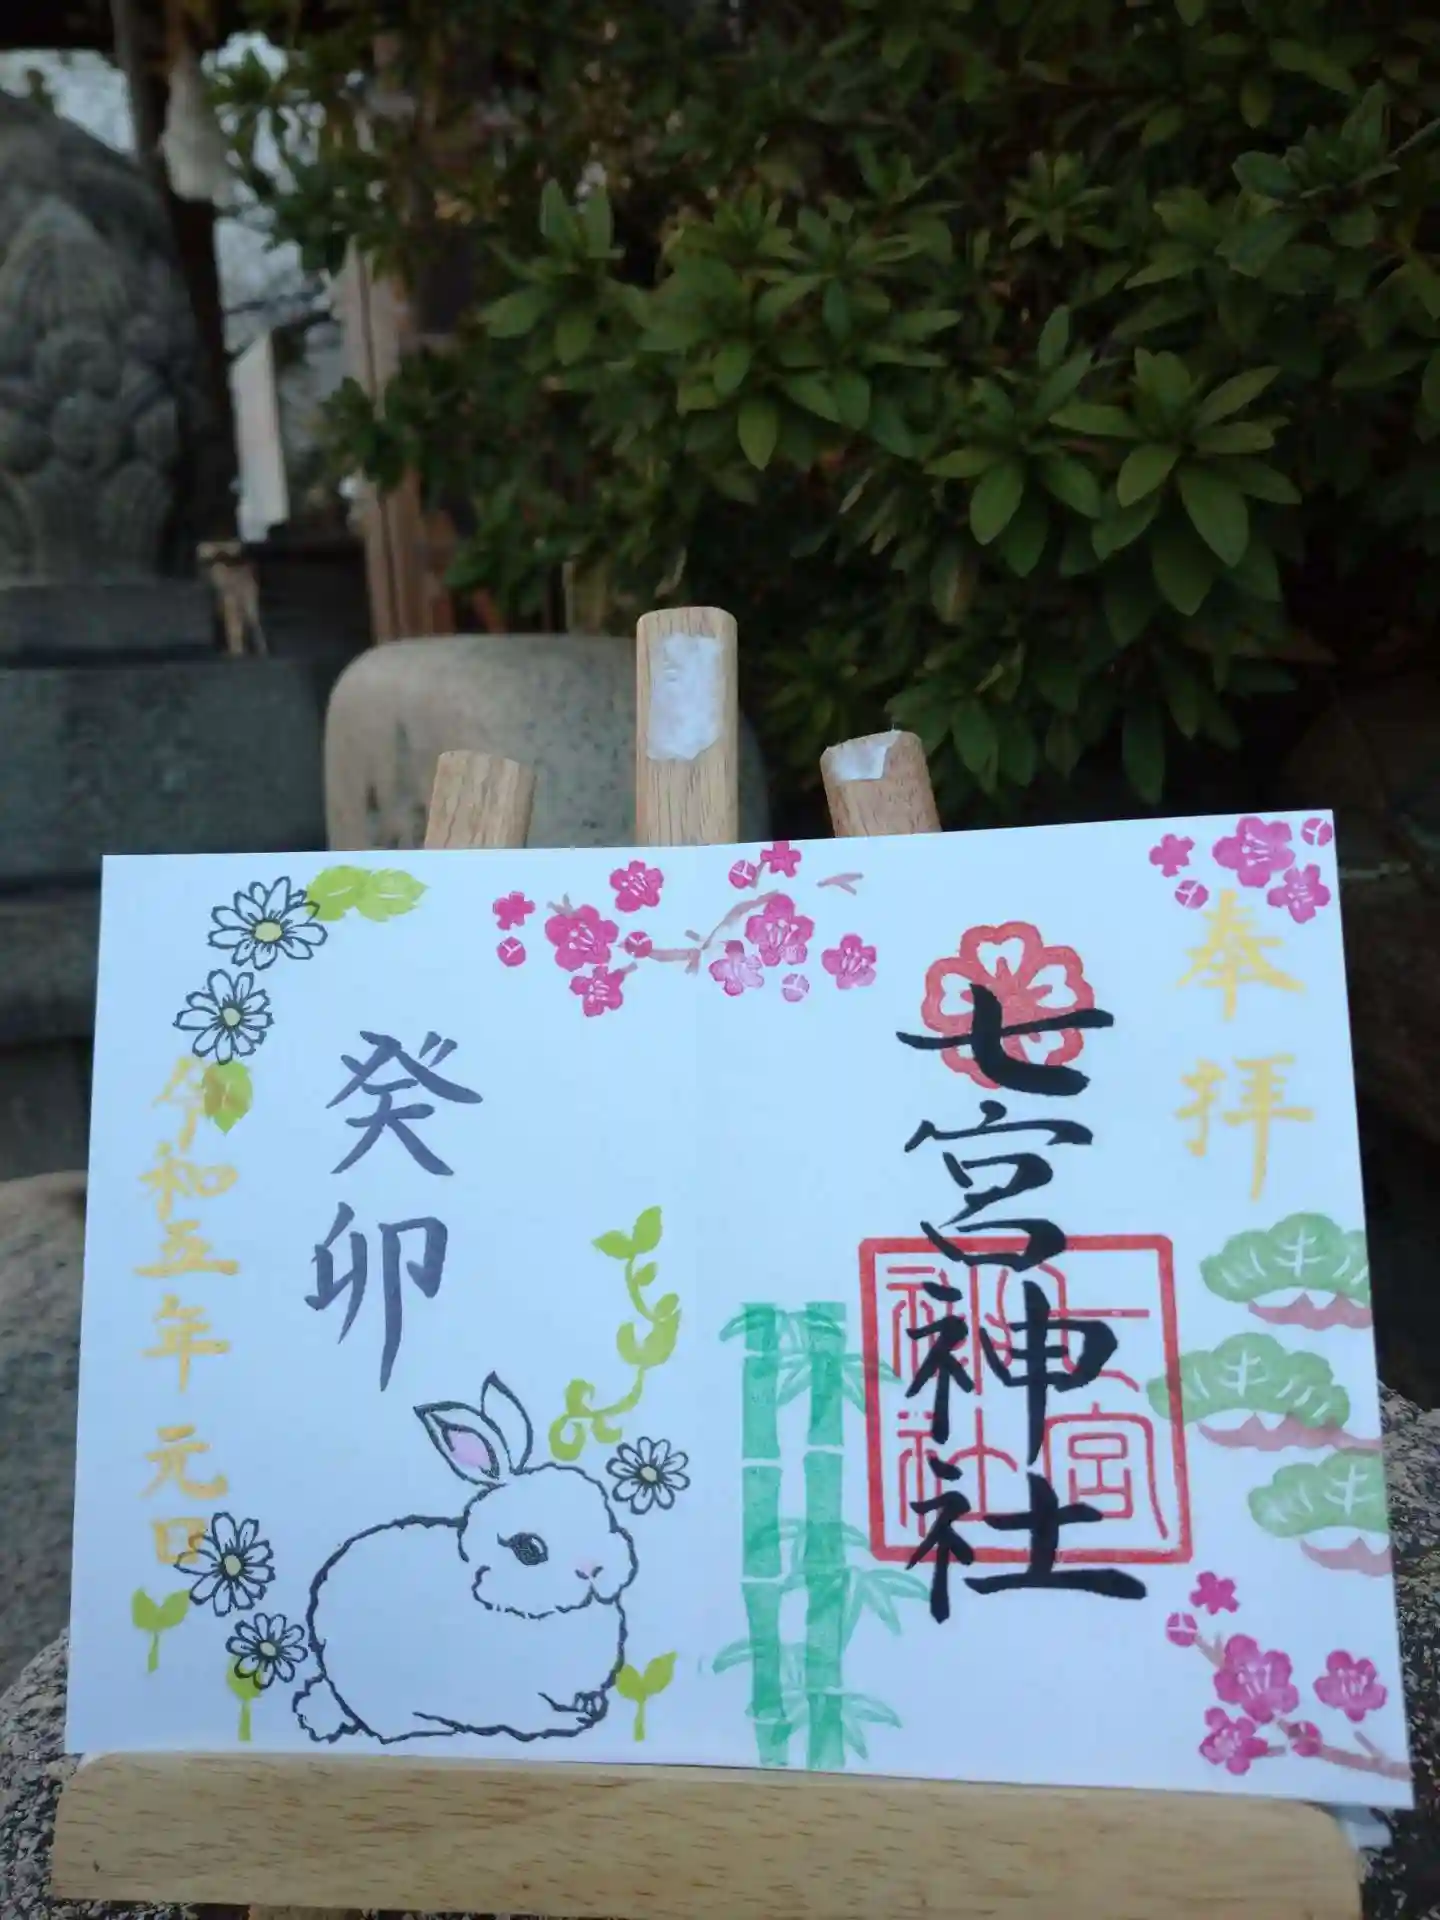 奉拝
七宮神社
七宮神社
癸卯
令和五年 元日